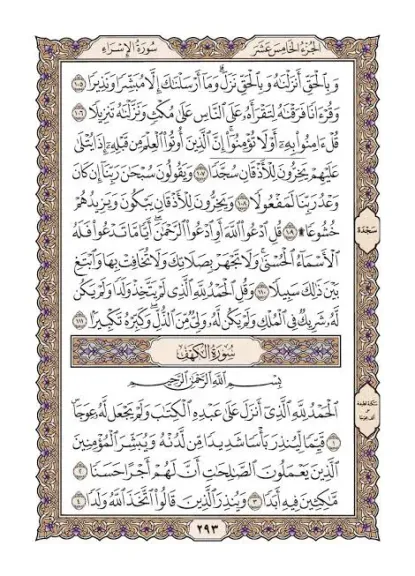 الجزء الخامس عشر
سورة الإسراء
وَبِالْحَقِّ أَنزَلْنَاهُ وَبِالْحَقِّ نَزَلَ وَمَا أَرْسَلْنَاكَ إِلَّا مُبَشِّرًا وَنَذِيرًا ١٠٥
وَقُرْءَانًا فَرَقْنَاهُ لِتَقْرَأَهُ عَلَى النَّاسِ عَلَى مُكْثٍ وَنَزَّلْنَاهُ تَنزِيلًا ١٠٦
قُلْ ءَامِنُوا بِهِ أَوْ لَا تُؤْمِنُوا إِنَّ الَّذِينَ أُوتُوا الْعِلْمَ مِن قَبْلِهِ إِذَا يُتْلَى
عَلَيْهِمْ يَخِرُّونَ لِلْأَذْقَانِ سُجَّدًا ١٠٧ وَيَقُولُونَ سُبْحَانَ رَبِّنَا إِن كَانَ
وَعْدُ رَبِّنَا لَمَفْعُولًا ١٠٨ وَيَخِرُّونَ لِلْأَذْقَانِ يَبْكُونَ وَيَزِيدُهُمْ
خُشُوعًا ۩ ١٠٩ قُلِ ادْعُوا اللَّهَ أَوِ ادْعُوا الرَّحْمَٰنَ أَيًّا مَّا تَدْعُوا فَلَهُ
الْأَسْمَاءُ الْحُسْنَى وَلَا تَجْهَرْ بِصَلَاتِكَ وَلَا تُخَافِتْ بِهَا وَابْتَغِ
بَيْنَ ذَٰلِكَ سَبِيلًا ١١٠ وَقُلِ الْحَمْدُ لِلَّهِ الَّذِي لَمْ يَتَّخِذْ وَلَدًا وَلَمْ يَكُن
لَّهُ شَرِيكٌ فِي الْمُلْكِ وَلَمْ يَكُن لَّهُ وَلِيٌّ مِّنَ الذُّلِّ وَكَبِّرْهُ تَكْبِيرًا ١١١
سجدة
سورة الكهف
بِسْمِ اللَّهِ الرَّحْمَٰنِ الرَّحِيمِ
الْحَمْدُ لِلَّهِ الَّذِي أَنزَلَ عَلَى عَبْدِهِ الْكِتَابَ وَلَمْ يَجْعَل لَّهُ عِوَجًا
١ قَيِّمًا لِّيُنذِرَ بَأْسًا شَدِيدًا مِّن لَّدُنْهُ وَيُبَشِّرَ الْمُؤْمِنِينَ
الَّذِينَ يَعْمَلُونَ الصَّالِحَاتِ أَنَّ لَهُمْ أَجْرًا حَسَنًا ٢
مَّاكِثِينَ فِيهِ أَبَدًا ٣ وَيُنذِرَ الَّذِينَ قَالُوا اتَّخَذَ اللَّهُ وَلَدًا ٤
٢٩٣